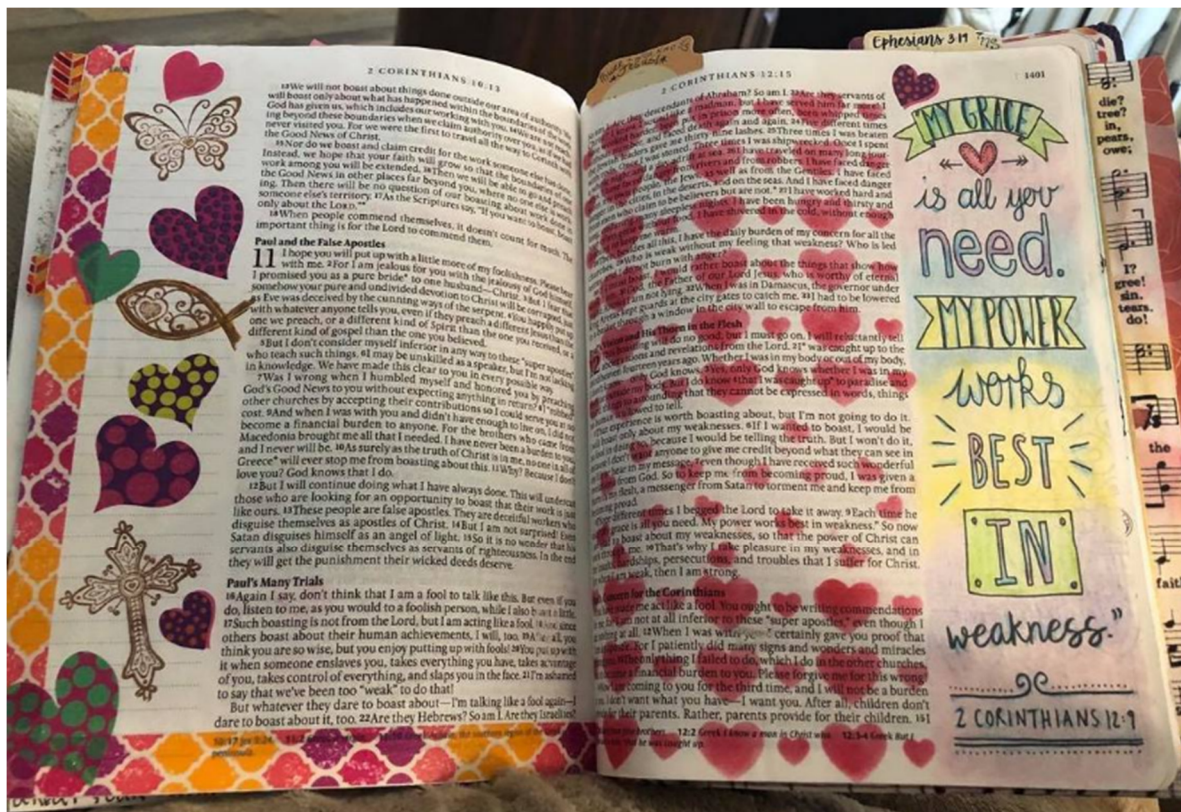 2 CORINTHIANS 10:13
13We will not boast about things done outside our area of authority. We
will boast only about what has happened within the boundaries of the work
God has given us, which includes our working with you. 14We are not reach-
ing beyond these boundaries when we claim authority over you, as if we had
never visited you. For we were the first to travel all the way to Corinth with
the Good News of Christ.
15Nor do we boast and claim credit for the work someone else has done.
Instead, we hope that your faith will grow so that the boundaries of our
work among you will be extended. 16Then we will be able to go and preach
the Good News in other places far beyond you, where no one else is work-
ing. Then there will be no question of our boasting about work done in
someone else's territory. 17As the Scriptures say, "If you want to boast, boast
only about the LORD."*
18When people commend themselves, it doesn't count for much. The
important thing is for the Lord to commend them.
Paul and the False Apostles
11 I hope you will put up with a little more of my foolishness. Please bear
with me. 2For I am jealous for you with the jealousy of God himself.
I promised you as a pure bride* to one husband—Christ. 3But I fear that
somehow your pure and undivided devotion to Christ will be corrupted, just
as Eve was deceived by the cunning ways of the serpent. 4You happily put up
with whatever anyone tells you, even if they preach a different Jesus than the
one we preach, or a different kind of Spirit than the one you received, or a
different kind of gospel than the one you believed.
5But I don't consider myself inferior in any way to these "super apostles"
who teach such things. 6I may be unskilled as a speaker, but I'm not lacking
in knowledge. We have made this clear to you in every possible way.
7Was I wrong when I humbled myself and honored you by preaching
God's Good News to you without expecting anything in return? 8I "robbed"
other churches by accepting their contributions so I could serve you at no
cost. 9And when I was with you and didn't have enough to live on, I did not
become a financial burden to anyone. For the brothers who came from
Macedonia brought me all that I needed. I have never been a burden to you,
and I never will be. 10As surely as the truth of Christ is in me, no one in all of
Greece* will ever stop me from boasting about this. 11Why? Because I don't
love you? God knows that I do.
12But I will continue doing what I have always done. This will undercut
those who are looking for an opportunity to boast that their work is just
like ours. 13These people are false apostles. They are deceitful workers who
disguise themselves as apostles of Christ. 14But I am not surprised! Even
Satan disguises himself as an angel of light. 15So it is no wonder that his
servants also disguise themselves as servants of righteousness. In the end
they will get the punishment their wicked deeds deserve.
Paul's Many Trials
16Again I say, don't think that I am a fool to talk like this. But even if you
do, listen to me, as you would to a foolish person, while I also boast a little.
17Such boasting is not from the Lord, but I am acting like a fool. 18And since
others boast about their human achievements, I will, too. 19After all, you
think you are so wise, but you enjoy putting up with fools! 20You put up with
it when someone enslaves you, takes everything you have, takes advantage
of you, takes control of everything, and slaps you in the face. 21I'm ashamed
to say that we've been too "weak" to do that!
But whatever they dare to boast about—I'm talking like a fool again—I
dare to boast about it, too. 22Are they Hebrews? So am I. Are they Israelites?
Ephesians 3:19
2 CORINTHIANS 12:15
1401
descendants of Abraham? So am I. 23Are they servants of
madman, but I have served him far more! I
in prison more often, been whipped times
faced death again and again. 24Five different times
leaders gave me thirty-nine lashes. 25Three times I was beaten
I was stoned. Three times I was shipwrecked. Once I spent
night and a day adrift at sea. 26I have traveled on many long jour-
from rivers and from robbers. I have faced danger
own people, the Jews, as well as from the Gentiles. I have faced
cities, in the deserts, and on the seas. And I have faced danger
men who claim to be believers but are not.* 27I have worked hard and
many sleepless nights. I have been hungry and thirsty and
I have shivered in the cold, without enough
to keep me warm.
besides all this, I have the daily burden of my concern for all the
Who is weak without my feeling that weakness? Who is led
do not burn with anger?
must boast, I would rather boast about the things that show how
God, the Father of our Lord Jesus, who is worthy of eternal
I am not lying. 32When I was in Damascus, the governor under
kept guards at the city gates to catch me. 33I had to be lowered
through a window in the city wall to escape from him.
Vision and His Thorn in the Flesh
boasting will do no good, but I must go on. I will reluctantly tell
visions and revelations from the Lord. 2I* was caught up to the
fourteen years ago. Whether I was in my body or out of my body,
only God knows. 3Yes, only God knows whether I was in my
body. But I do know 4that I was caught up* to paradise and
so astounding that they cannot be expressed in words, things
allowed to tell.
experience is worth boasting about, but I'm not going to do it.
boast only about my weaknesses. 6If I wanted to boast, I would be
in doing so, because I would be telling the truth. But I won't do it,
I don't want anyone to give me credit beyond what they can see in
hear in my message, 7even though I have received such wonderful
from God. So to keep me from becoming proud, I was given a
flesh, a messenger from Satan to torment me and keep me from
proud.
different times I begged the Lord to take it away. 9Each time he
grace is all you need. My power works best in weakness." So now
to boast about my weaknesses, so that the power of Christ can
me. 10That's why I take pleasure in my weaknesses, and in
hardships, persecutions, and troubles that I suffer for Christ.
I am weak, then I am strong.
Concern for the Corinthians
made me act like a fool. You ought to be writing commendations
I am not at all inferior to these "super apostles," even though I
nothing at all. 12When I was with you I certainly gave you proof that
For I patiently did many signs and wonders and miracles
The only thing I failed to do, which I do in the other churches,
become a financial burden to you. Please forgive me for this wrong!
coming to you for the third time, and I will not be a burden
I don't want what you have—I want you. After all, children don't
their parents. Rather, parents provide for their children. 15I
12:2 Greek I know a man in Christ who. 12:3-4 Greek But I
that he was caught up.
"MY GRACE
is all you
need.
MY POWER
works
BEST
IN
weakness."
2 CORINTHIANS 12:9
die?
tree?
in,
pears,
owe;
I?
gree!
sin.
tears.
do!
the
fait